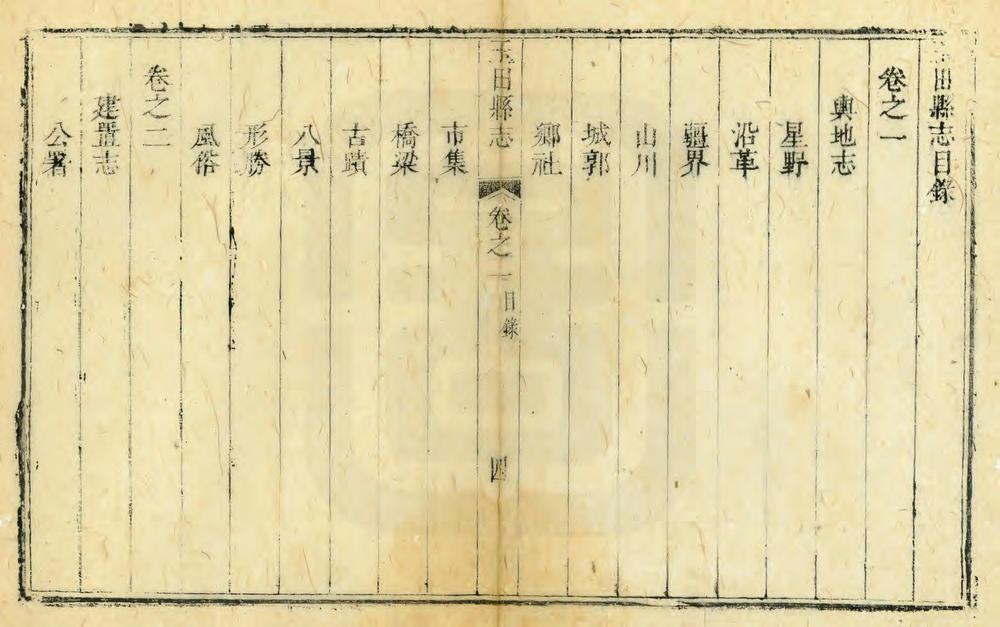 玉田縣志目錄
卷之一
輿地志
星野
沿革
疆界
山川
城郭
鄉社
玉田縣志
卷之一
目錄
四
市集
橋梁
古蹟
八景
形勝
風俗
卷之二
建置志
公署